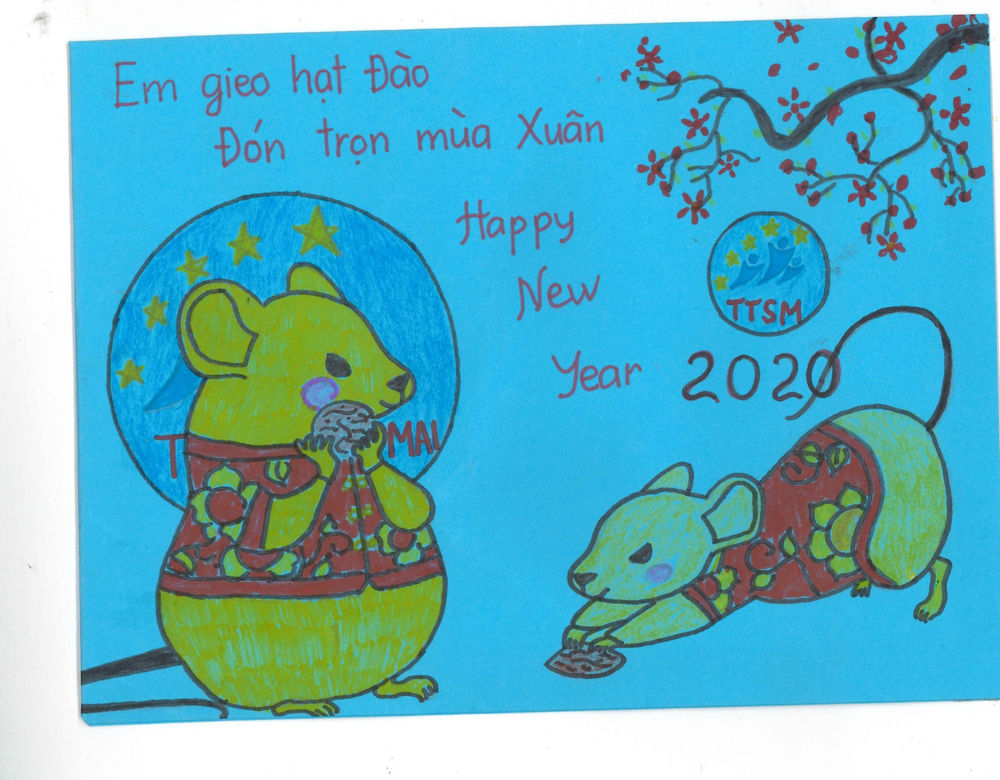 Em gieo hạt Đào
Đón trọn mùa Xuân
Happy
New
Year 2020
TTSM
T
MAI